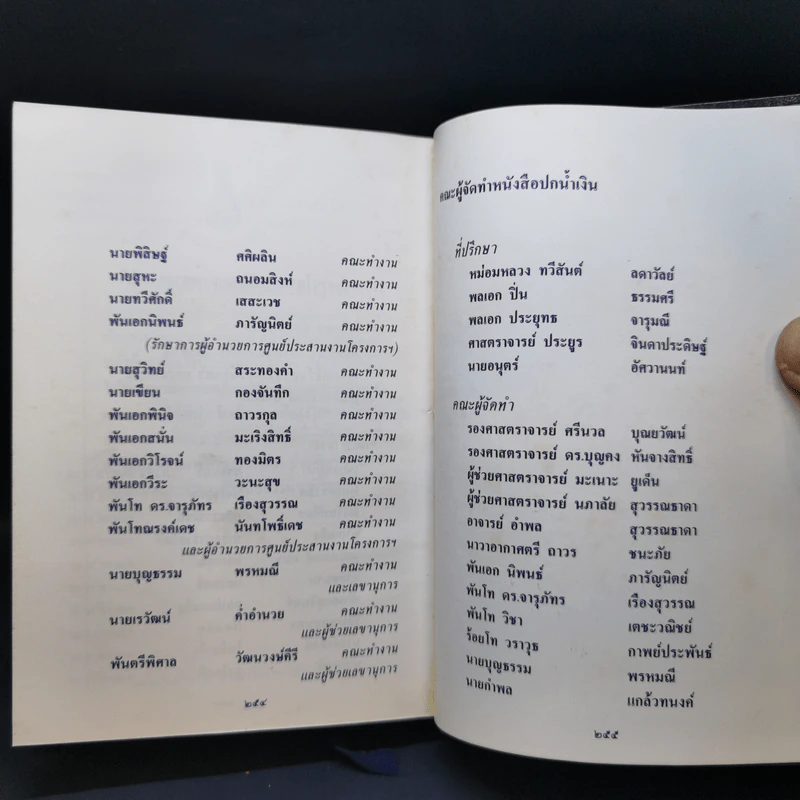 นายพิสิษฐ์ ศศิผลิน คณะทำงาน
นายสุหะ ถนอมสิงห์ คณะทำงาน
นายทวีศักดิ์ เสสะเวช คณะทำงาน
พันเอกนิพนธ์ ภารัญนิตย์ คณะทำงาน
(รักษาการผู้อำนวยการศูนย์ประสานงานโครงการฯ)
นายสุวิทย์ สระทองคำ คณะทำงาน
นายเขียน กองจันทึก คณะทำงาน
พันเอกพินิจ ถาวรกุล คณะทำงาน
พันเอกสนั่น มะเริงสิทธิ์ คณะทำงาน
พันเอกวิโรจน์ ทองมิตร คณะทำงาน
พันเอกวีระ วะนะสุข คณะทำงาน
พันโท ดร.จารุภัทร เรืองสุวรรณ คณะทำงาน
พันโทณรงค์เดช นันทโพธิ์เดช คณะทำงาน
และผู้อำนวยการศูนย์ประสานงานโครงการฯ
นายบุญธรรม พรหมณี คณะทำงาน
และเลขานุการ
นายเรวัฒน์ ค่ำอำนวย คณะทำงาน
และผู้ช่วยเลขานุการ
พันตรีพิศาล วัฒนวงษ์คีรี คณะทำงาน
และผู้ช่วยเลขานุการ
๒๕๔
คณะผู้จัดทำหนังสือปกน้ำเงิน
ที่ปรึกษา
หม่อมหลวง ทวีสันต์ ลดาวัลย์
พลเอก ปิ่น ธรรมศรี
พลเอก ประยุทธ จารุมณี
ศาสตราจารย์ ประยูร จินดาประดิษฐ์
นายอนุตร์ อัศวานนท์
คณะผู้จัดทำ
รองศาสตราจารย์ ศรีนวล บุณยวัฒน์
รองศาสตราจารย์ ดร.บุญคง หันจางสิทธิ์
ผู้ช่วยศาสตราจารย์ มะเนาะ ยูเด็น
ผู้ช่วยศาสตราจารย์ นภาลัย สุวรรณธาดา
อาจารย์ อำพล สุวรรณธาดา
นาวาอากาศตรี ถาวร ชนะภัย
พันเอก นิพนธ์ ภารัญนิตย์
พันโท ดร.จารุภัทร เรืองสุวรรณ
พันโท วิชา เตชะวณิชย์
ร้อยโท วราวุธ กาพย์ประพันธ์
นายบุญธรรม พรหมณี
นายกำพล แกล้วทนงค์
๒๕๕